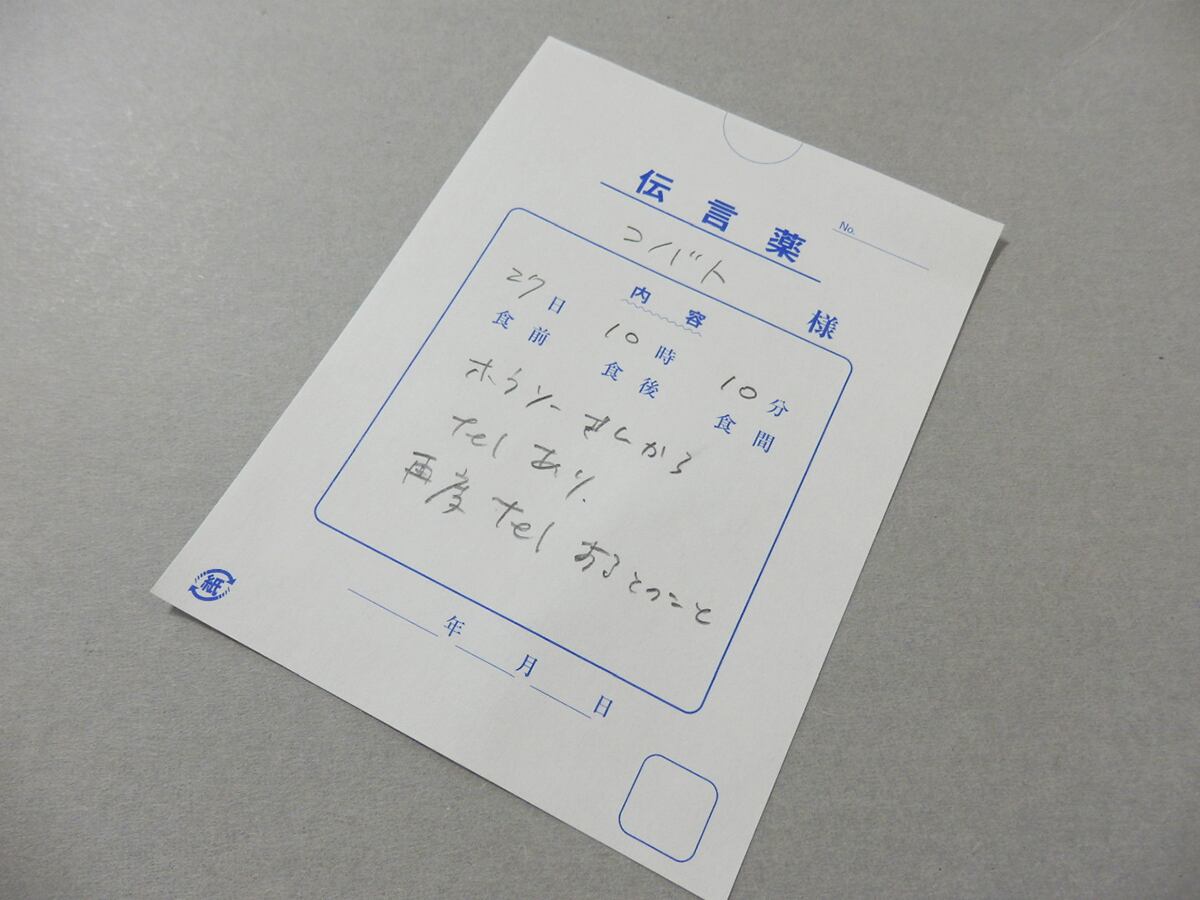 伝言薬
No.
コバト 様
内容
27日 10時 10分
食前 食後 食間
ホウソーさんから
telあり.
再度telあるとのこと
紙
年 月 日